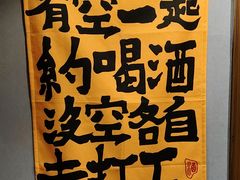 有空一起
約喝酒
沒空各自
去打工